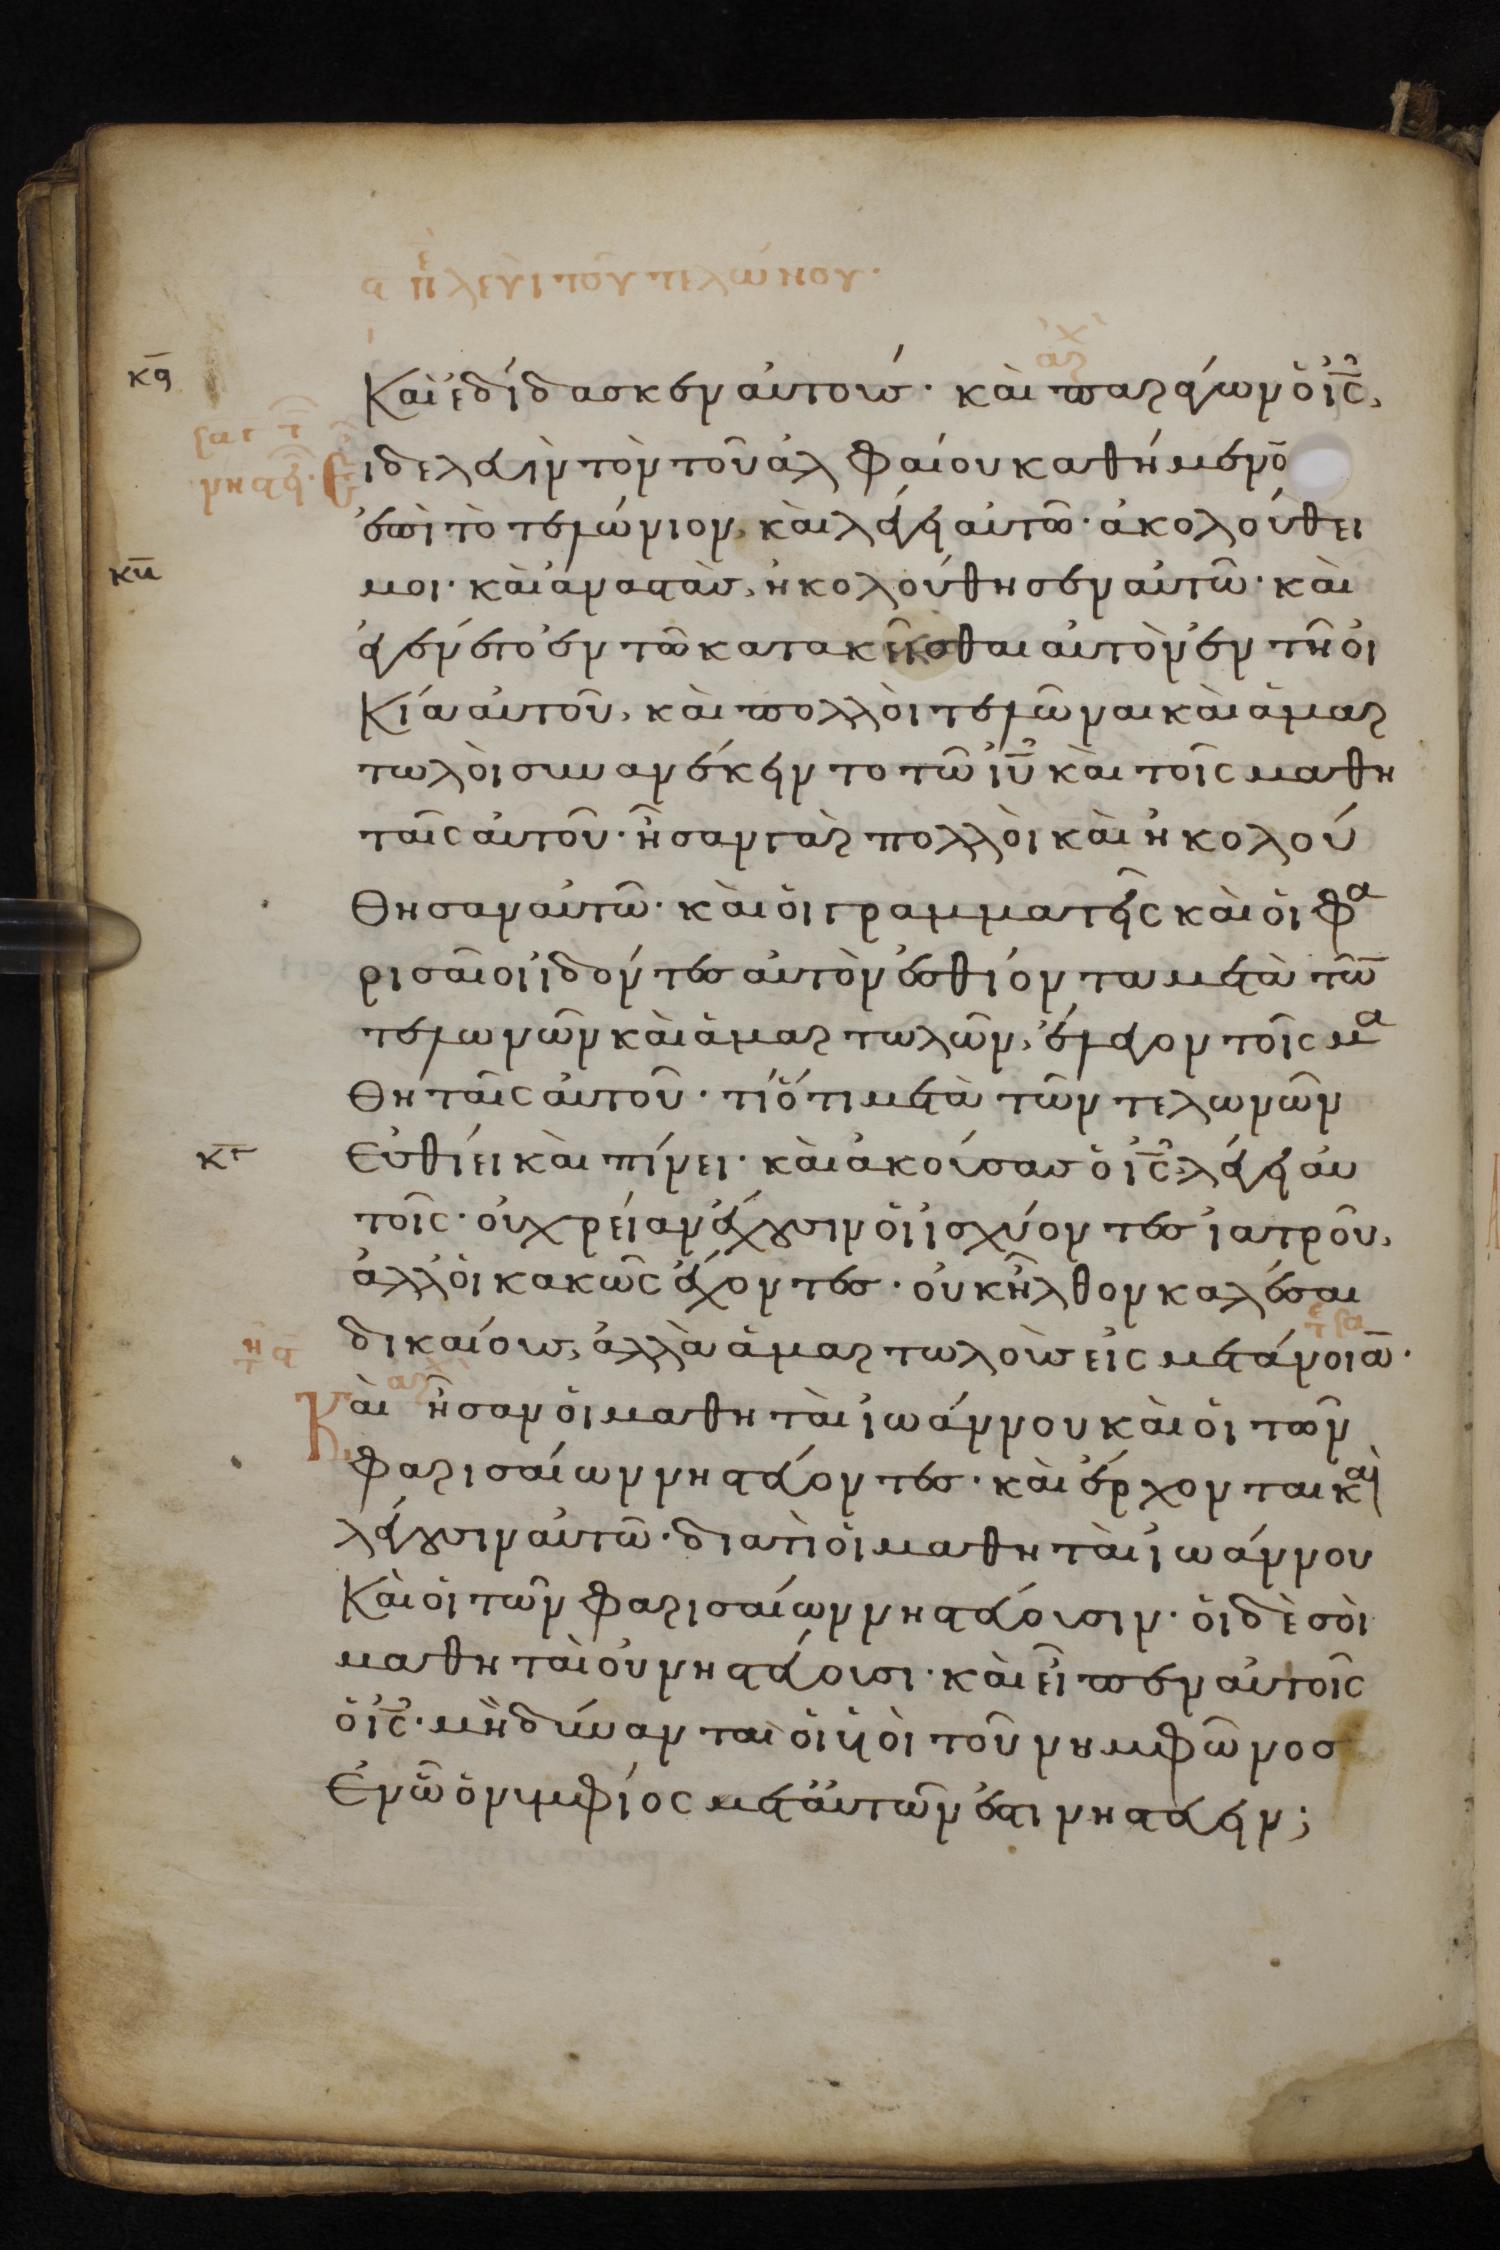 ϛ πε λευὶ τοῦ τελώνου·
κϛ
Καὶ ἐδίδασκεν αὐτούς· καὶ παράγων ὁ ις̄,
ἀρχ
ἰδε λευὶν τὸν τοῦ ἀλφαίου καθήμενο̄
ἐπὶ τὸ τελώνιον, καὶ λέγει αὐτῶ· ἀκολούθει
κα
μοι· καὶ ἀναστὰς, ἠκολούθησεν αὐτῶ· καὶ
ἐγένετο ἐν τῶ κατακεῖσθαι αὐτὸν ἐν τῆ οἰ
κία αὐτοῦ, καὶ πολλοὶ τελῶναι καὶ ἁμαρ
τωλοὶ συνανέκειντο τῶ ιῡ καὶ τοῖς μαθη
ταῖς αὐτοῦ· ἦσαν γὰρ πολλοὶ καὶ ἠκολού
θησαν αὐτῶ· καὶ οἱ γραμματεῖς καὶ οἱ φα
ρισαῖοι ἰδόντες αὐτὸν ἐσθίοντα μετὰ τῶ̄
τελωνῶν καὶ ἁμαρτωλῶν, ἔλεγον τοῖς μα
θηταῖς αὐτοῦ· τί ὅτι μετὰ τῶν τελωνῶν
κγ
ἐσθίει καὶ πίνει· καὶ ἀκούσας ὁ ις̄, λέγει αὐ
τοῖς· οὐ χρείαν ἔχουσιν οἱ ἰσχύοντες ἰατροῦ,
ἀλλ' οἱ κακῶς ἔχοντες· οὐκ ἦλθον καλέσαι
δικαίους, ἀλλὰ ἁμαρτωλοὺς εἰς μετάνοιᾱ·
ἀρχ
Καὶ ἦσαν οἱ μαθηταὶ ἰωάννου καὶ οἱ τῶν
φαρισαίων νηστεύοντες· καὶ ἔρχονται καὶ
λέγουσιν αὐτῶ· διατὶ οἱ μαθηταὶ ἰωάννου
καὶ οἱ τῶν φαρισαίων νηστεύουσιν· οἱ δὲ σοὶ
μαθηταὶ οὐ νηστεύουσι· καὶ εἶπεν αὐτοῖς
ὁ ις̄· μὴ δύνανται οἱ υἱοὶ τοῦ νυμφῶνος
ἐν ὧ ὁ νυμφίος μετ' αὐτῶν ἐστι νηστεύειν;